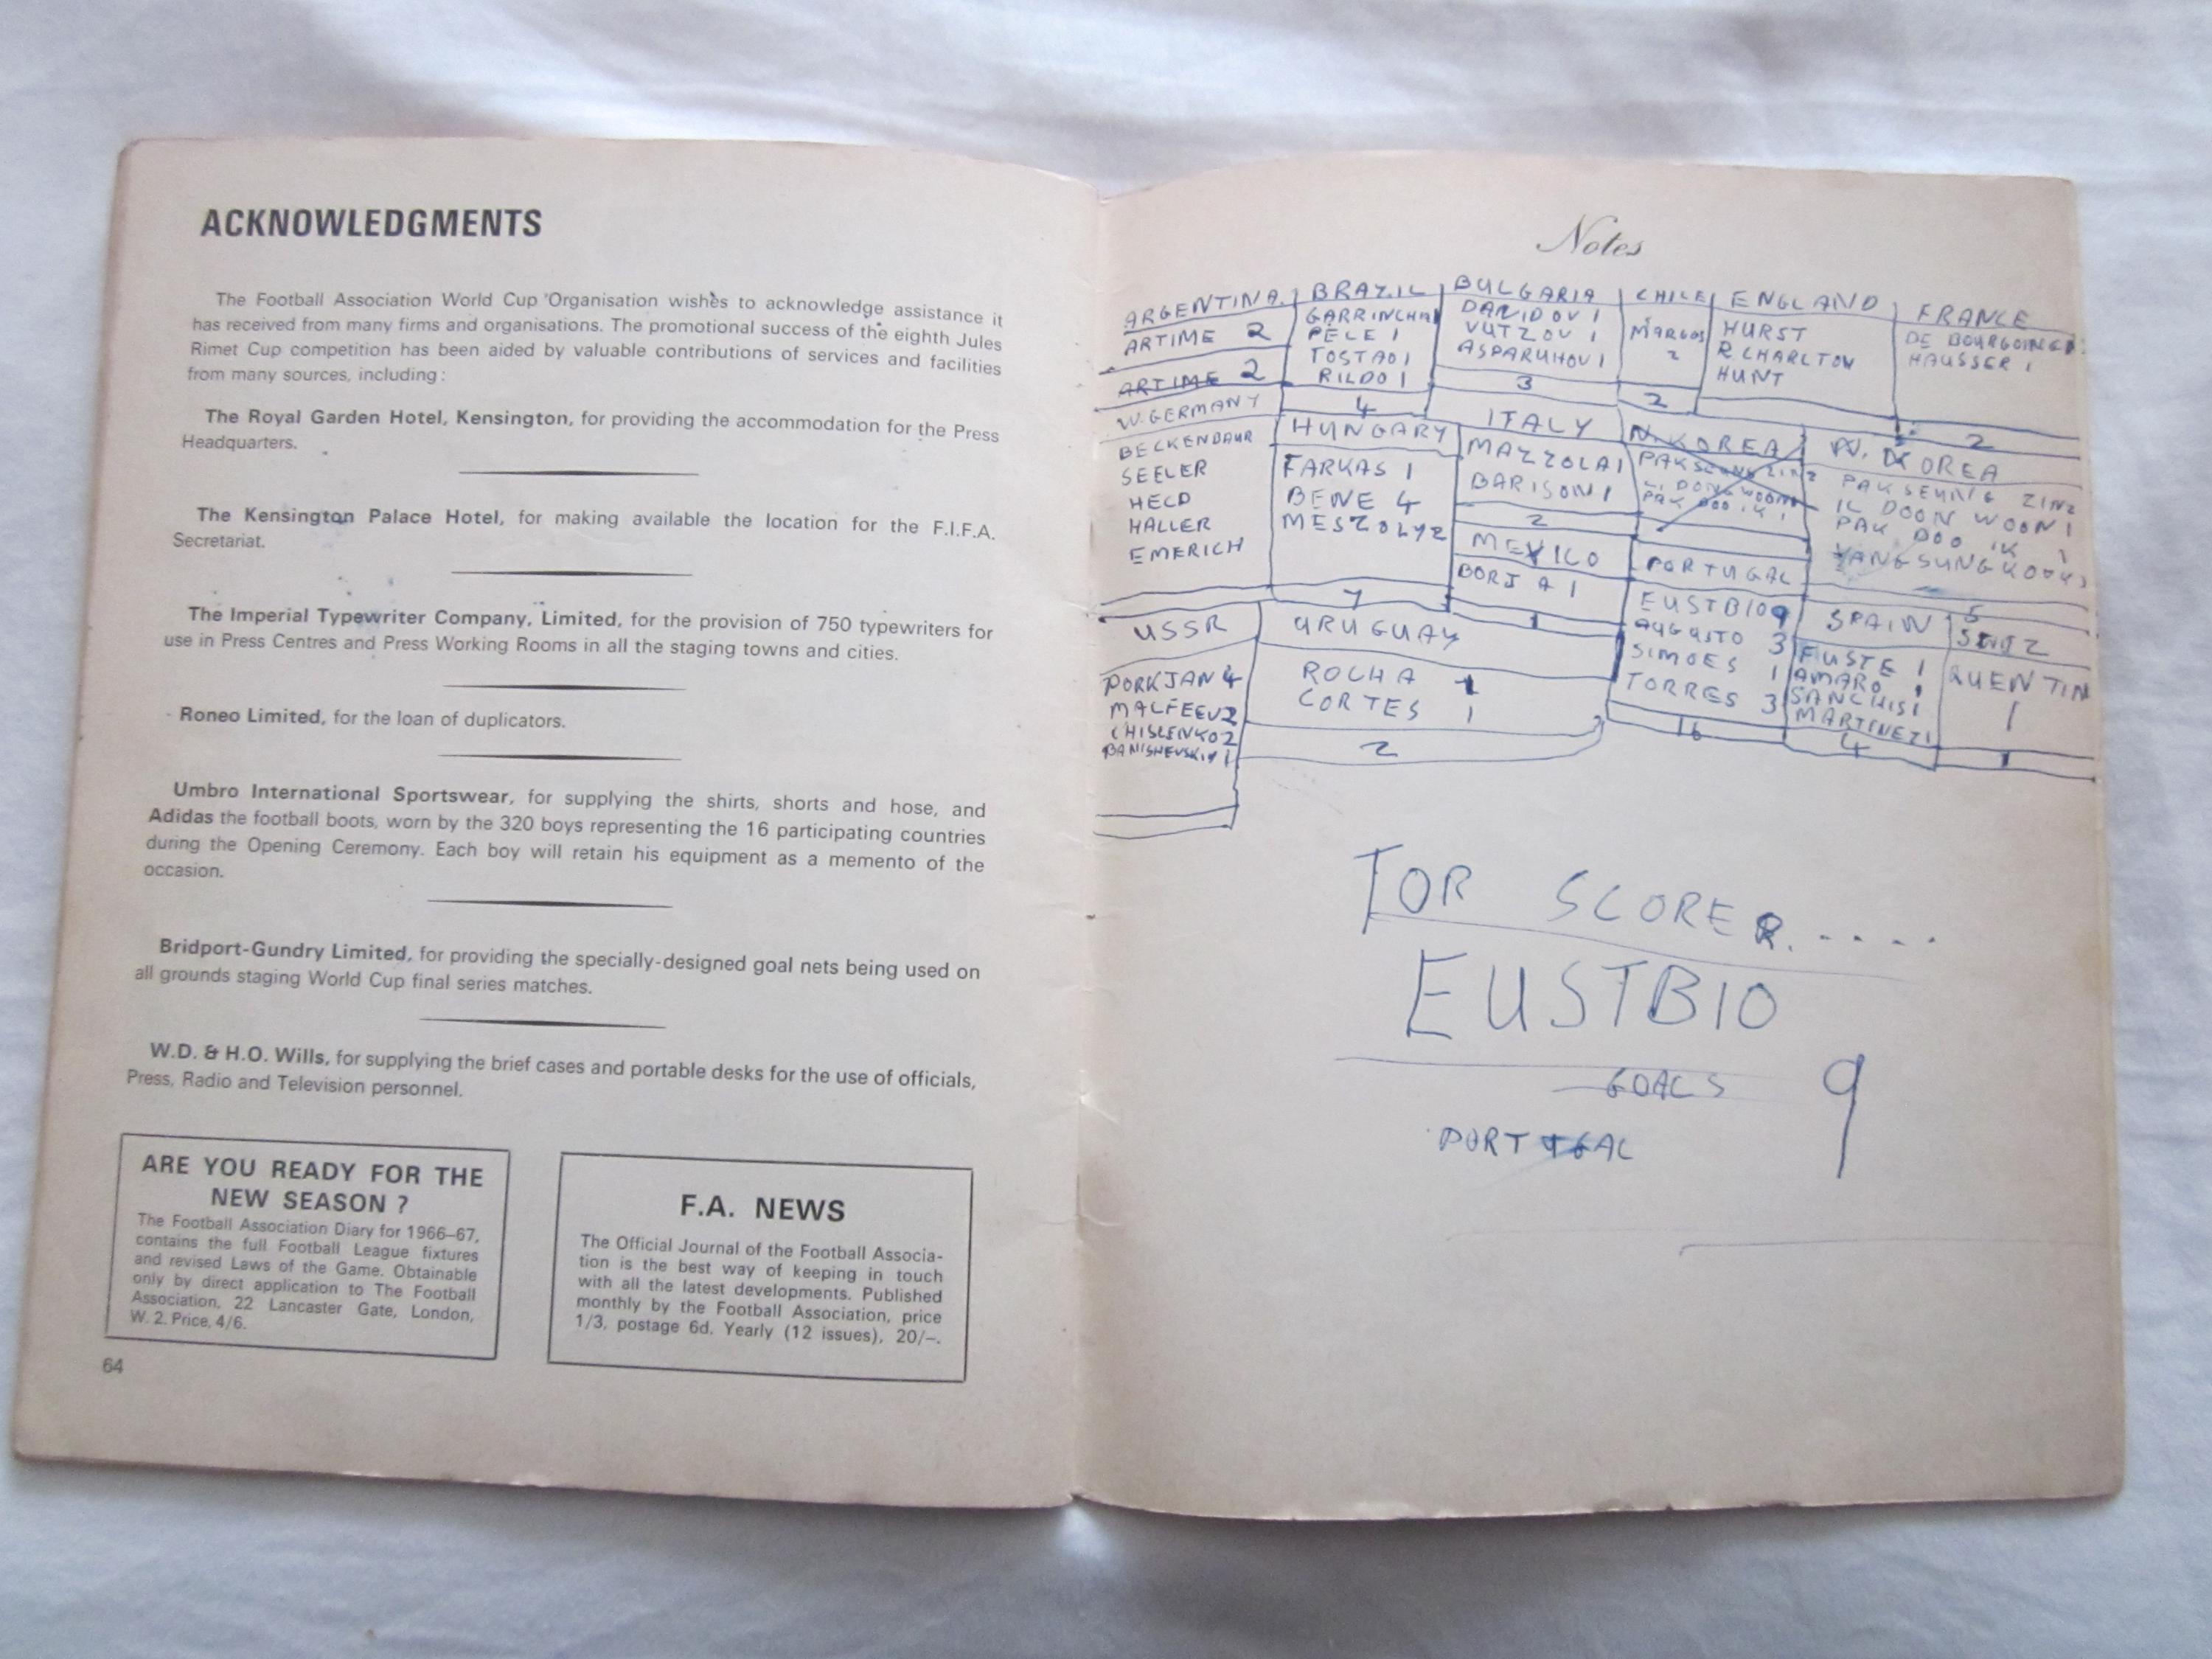 ACKNOWLEDGMENTS
The Football Association World Cup Organisation wishes to acknowledge assistance it
has received from many firms and organisations. The promotional success of the eighth Jules
Rimet Cup competition has been aided by valuable contributions of services and facilities
from many sources, including:
The Royal Garden Hotel, Kensington, for providing the accommodation for the Press
Headquarters.
The Kensington Palace Hotel, for making available the location for the F.I.F.A.
Secretariat.
The Imperial Typewriter Company, Limited, for the provision of 750 typewriters for
use in Press Centres and Press Working Rooms in all the staging towns and cities.
Roneo Limited, for the loan of duplicators.
Umbro International Sportswear, for supplying the shirts, shorts and hose, and
Adidas the football boots, worn by the 320 boys representing the 16 participating countries
during the Opening Ceremony. Each boy will retain his equipment as a memento of the
occasion.
Bridport-Gundry Limited, for providing the specially-designed goal nets being used on
all grounds staging World Cup final series matches.
W.D. & H.O. Wills, for supplying the brief cases and portable desks for the use of officials,
Press, Radio and Television personnel.
ARE YOU READY FOR THE
NEW SEASON ?
The Football Association Diary for 1966–67,
contains the full Football League fixtures
and revised Laws of the Game. Obtainable
only by direct application to The Football
Association, 22 Lancaster Gate, London,
W. 2. Price, 4/6.
F.A. NEWS
The Official Journal of the Football Associa-
tion is the best way of keeping in touch
with all the latest developments. Published
monthly by the Football Association, price
1/3, postage 6d. Yearly (12 issues), 20/–.
64
Notes
ARGENTINA
ARTIME 2
ARTIME 2
BRAZIL
GARRINCHA 1
PELE 1
TOSTAO 1
RILDO 1
4
BULGARIA
DAVIDOV 1
VUTZOV 1
ASPARUHOV 1
3
CHILE
MARGOS
2
2
ENGLAND
HURST
R CHARLTON
HUNT
FRANCE
DE BOURGOING 1
HAUSSER 1
2
W. GERMANY
BECKENDAUR
SEELER
HELD
HALLER
EMERICH
HUNGARY
FARKAS 1
BENE 4
MESZOLY 2
7
ITALY
MAZZOLA 1
BARISON 1
2
MEXICO
BORJA 1
1
N. KOREA
PAK SEUNG ZIN 2
LI DONG WOON 1
PAK DOO IK 1
PORTUGAL
EUSTBIO 9
AUGUSTO 3
SIMOES 1
TORRES 3
16
N. KOREA
PAK SEUNG ZIN 2
IL DOON WOON 1
PAK DOO IK 1
YANG SUNG KOOK 1
5
USSR
PORKJAN 4
MALFEEV 2
CHISLENKO 2
BANISHEVSKIY 1
URUGUAY
ROCHA 1
CORTES 1
2
SPAIN
FUSTE 1
AMARO 1
SANCHIS 1
MARTINEZ 1
4
QUENTIN
1
1
TOP SCORER.....
EUSTBIO
GOALS 9
PORTUGAL